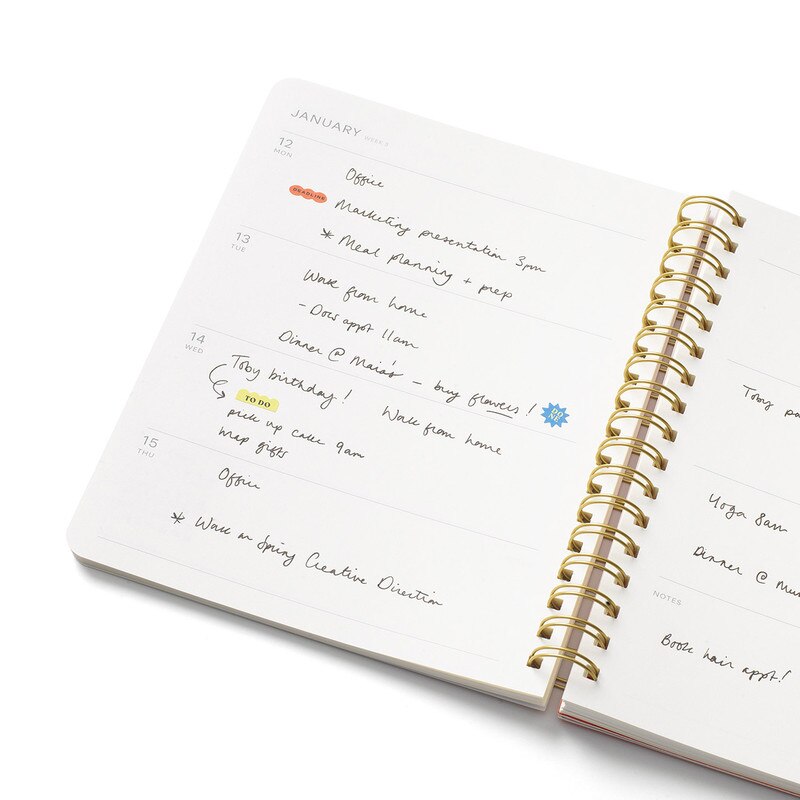 JANUARY WEEK
12
MON
Office
DEADLINE
Marketing presentation 3pm
* Meal planning + prep
13
TUE
Work from home
- Docs appt 11am
Dinner @ Maia's - buy flowers !
DO
NE!
14
WED
Toby birthday! Work from home
TO DO
pick up cake 9am
wrap gifts
15
THU
Office
* Work on Spring Creative Direction
Toby pa
Yoga 8am
Dinner @ Mu
NOTES
Book hair appt!